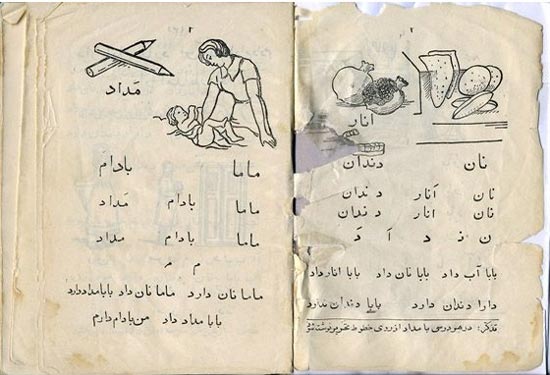 اَنار
نان دندان
نان اَنار دندان
نان انار دندان
ن نـ د اَ
بابا آب داد بابا نان داد بابا انار داد
دارا دندان دارد بابا دندان ندارد
تذکر: در هر درسی با مداد از روی خطوط نوشته
مَداد
ماما بادام
ماما بادام مَداد
ماما بادام مداد
م مـ
ماما نان دارد ماما نان داد بابا مداد دارد
بابا مداد داد من بادام دارم